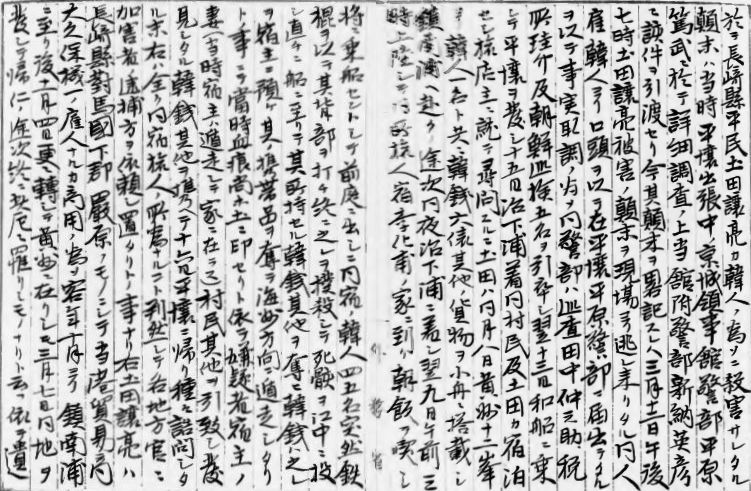 於テ長崎縣平民土田讓亮カ韓人ノ為ニ殺害サレタル
顛末ハ當時平壤出張中京城領事館警部平原
篤武ニ於テ詳細調査ノ上當館附警部新納英彦
ニ該件ヲ引渡セリ今其顛末ヲ畧記スレハ三月十二日午後
七時土田讓亮被害ノ顛末ヲ現場ヨリ逃レ来リタル同人
雇韓人ヨリ口頭ヲ以テ在平壤平原警部ニ届出タルヲ
以テ事実取調ノ為メ同警部ハ巡査田中仲之助税
所 及朝鮮巡検五名ヲ引卒シ翌十三日和船ニ乗
シテ平壤ヲ発シ十五日治下浦着同村民及土田カ宿泊
セシ旅店主ニ就テ尋問スルニ土田ハ同月八日黄州十二峯
ヨリ韓人一名ト共ニ韓錢六俵其他貨物ヲ小舟ニ搭載シ
鎮南浦ヘ赴クノ途次同夜治下浦ニ着シ翌九日午前三
時上陸シテ同所旅人宿李化甫ノ家ニ到リ朝飯ヲ喫シ
将ニ乗船セントシテ前庭ニ出シニ同宿ノ韓人四五名突然鉄
棍ヲ以テ其背部ヲ打チ終ニ之ヲ撲殺シテ死骸ヲ江中ニ投
シ直チニ船ニ至リテ其所持セル韓錢其他ヲ奪ヒ韓錢ハ之レ
ヲ宿主ニ預ケ其携帯品ヲ奪ヒ海州方向ニ遁走シタリ
ト事ニテ當時血痕尚ホ土ニ印セリト依テ嫌疑者宿主ノ
妻(當時宿主ハ遁走シテ家ニ在ラス)村民其他ヲ引致シ発
見シタル韓錢其他ヲ携ヘテ十六日平壤ニ帰リ種々詰問シタ
ル末右ハ全ク同宿旅人ノ所為ナルコト判然シテ各地方官ニ
加害者逮捕方ヲ依頼シ置タリトノ事ナリ右土田讓亮ハ
長崎縣對馬國下郡厳原ノモノニシテ當港貿易商
大久保機一ノ雇人ナルカ商用ノ為メ客年十月ヨリ鎮南浦
ニ至リ後一月四日更ニ轉シテ黄州ニ在リシモ三月七日同地ヲ
発シ帰仁ノ途次終ニ此厄ニ罹リシモノナリト云フ依テ遺